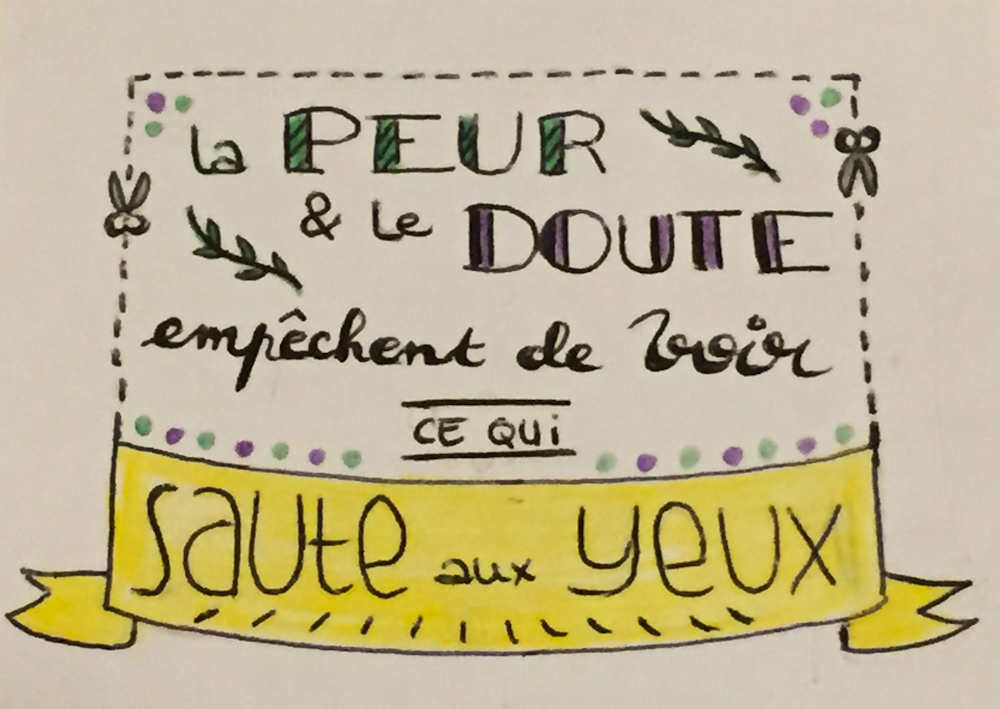 la PEUR
& le DOUTE
empêchent de voir
CE QUi
saute aux yeux